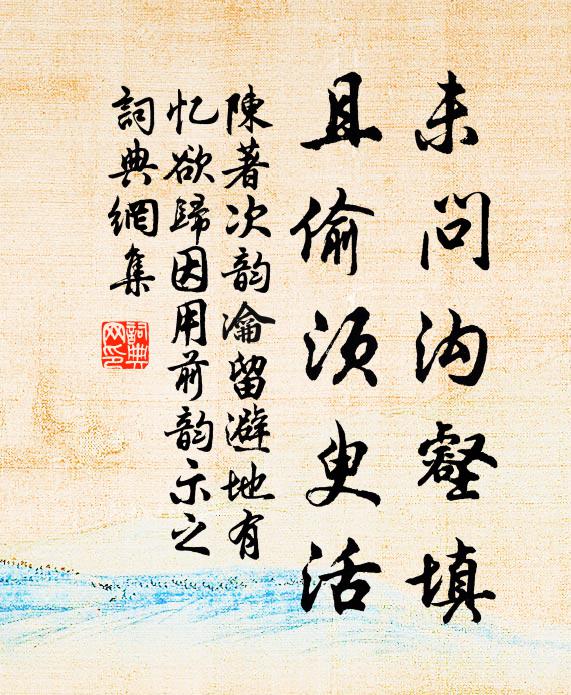 未问沟壑填
且偷须臾活
陳著次韵瀹留避地有
忆欲歸因用前韵示之
詞典網集
詞典网印